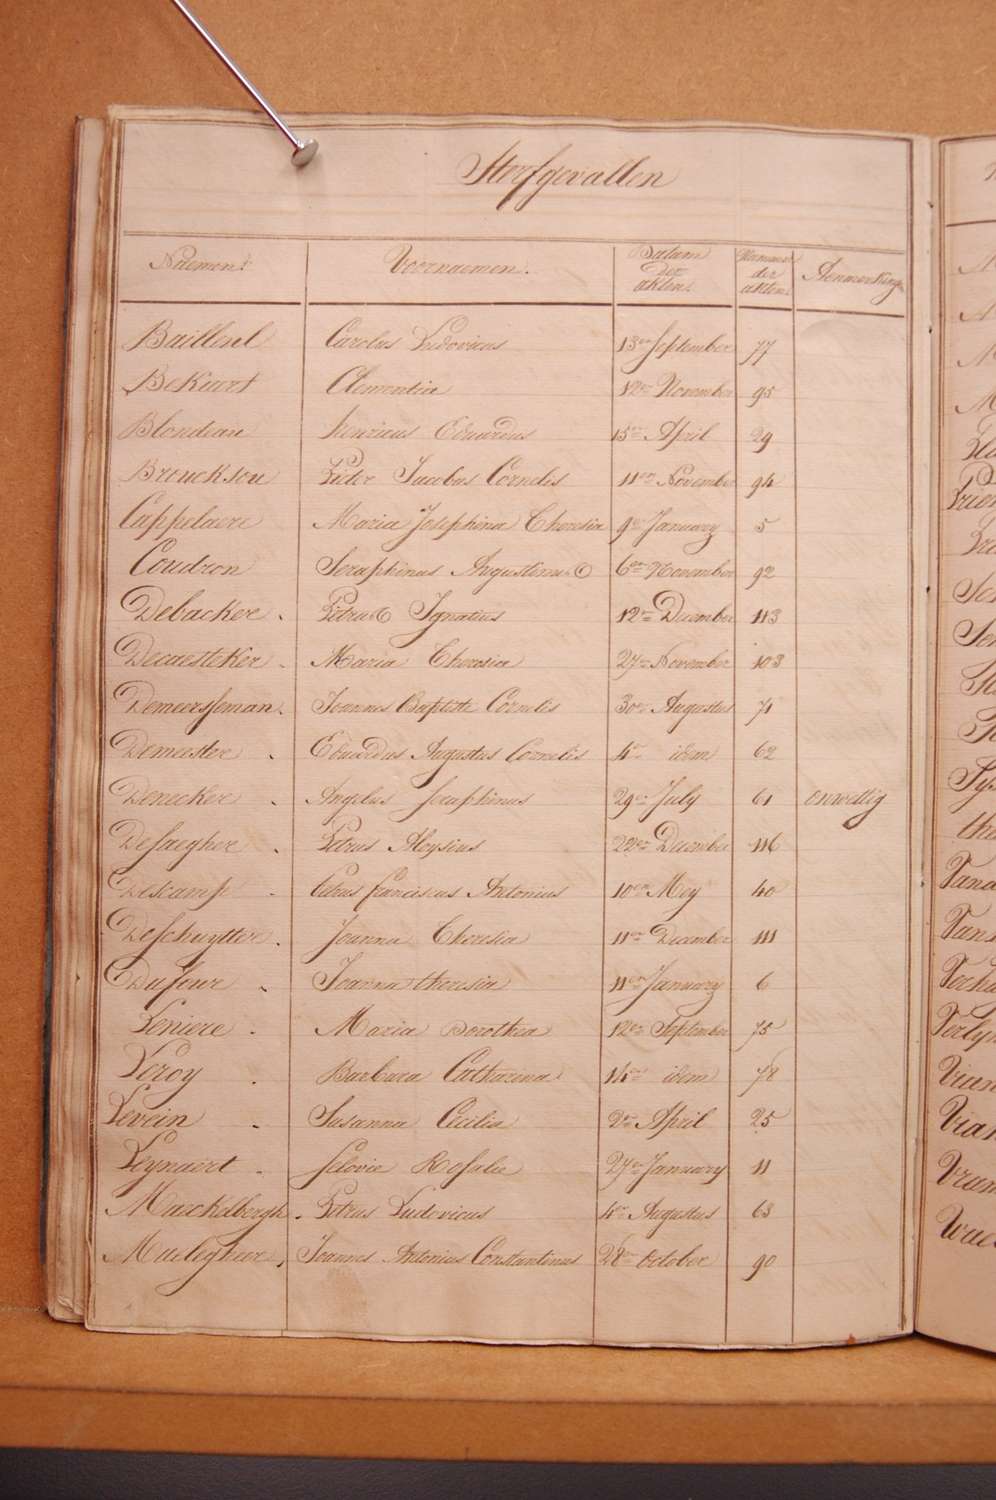 Sterfgevallen
Naemen Voornaemen Datum der akten Nummer der akten Aenmerking
Bailleul Carolus Ludovicus 13en September 77
Bekaert Clementia 12en November 95
Blondeau Henricus Eduardus 15en April 29
Brouckson Pieter Jacobus Cornelis 11en November 94
Cappelaere Maria Josephina Theresia 9en January 5
Coudron Seraphinus Augustinus 6en November 92
Debacker Petrus Ignatius 12en December 113
Decaesteker Maria Theresia 27en November 103
Demeersseman Joannes Baptiste Cornelis 30en Augustus 71
Demeester Eduardus Augustus Cornelis 4en idem 62
Denecker Angelus Seraphinus 29en July 61 onwettig
Desaegher Petrus Aloysius 22en December 116
Descamp Petrus Franciscus Antonius 10en Mey 40
Deschuytter Joanna Theresia 11en December 111
Dufour Joanna theresia 11en January 6
Leniere Maria Dorothea 12en September 75
Leroy Barbara Catharina 14en idem 78
Levein Susanna Cecilia 2en April 25
Leynaert Silovie Rosalie 27en January 11
Maeckelbergh Petrus Ludovicus 4en Augustus 63
Maelegheer Joannes Antonius Constantinus 28en October 90